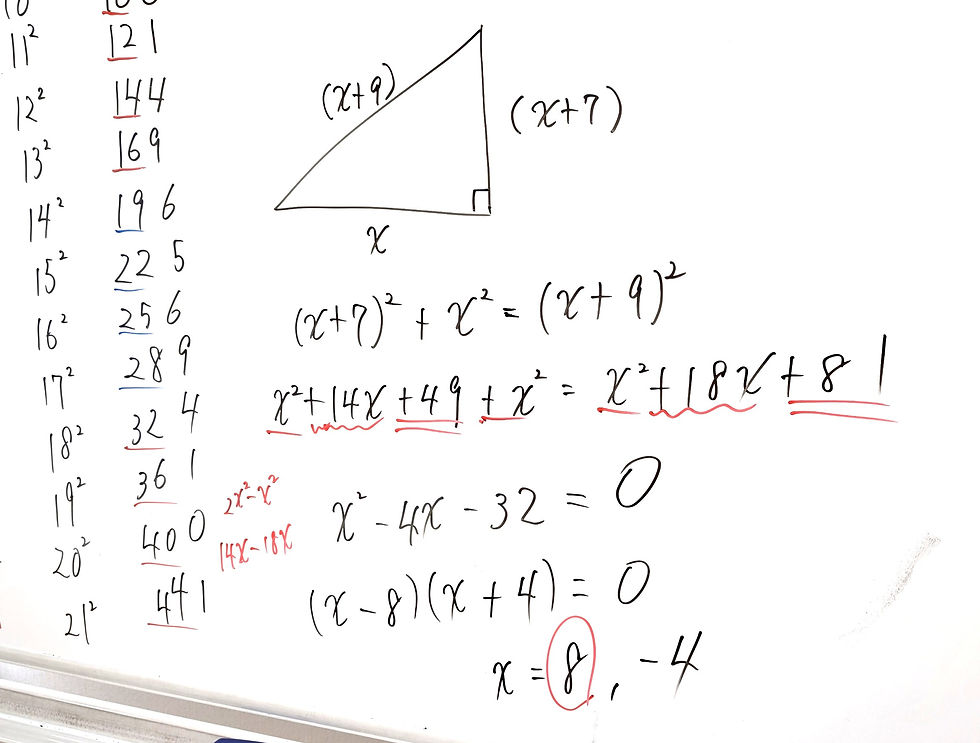 11² 121
12² 144
13² 169
14² 196
15² 225
16² 256
17² 289
18² 324
19² 361
20² 400
21² 441
(x+9)
(x+7)
x
(x+7)² + x² = (x+9)²
x²+14x+49+x² = x²+18x+81
2x²-x²
14x-18x
x²-4x-32 = 0
(x-8)(x+4) = 0
x = 8, -4